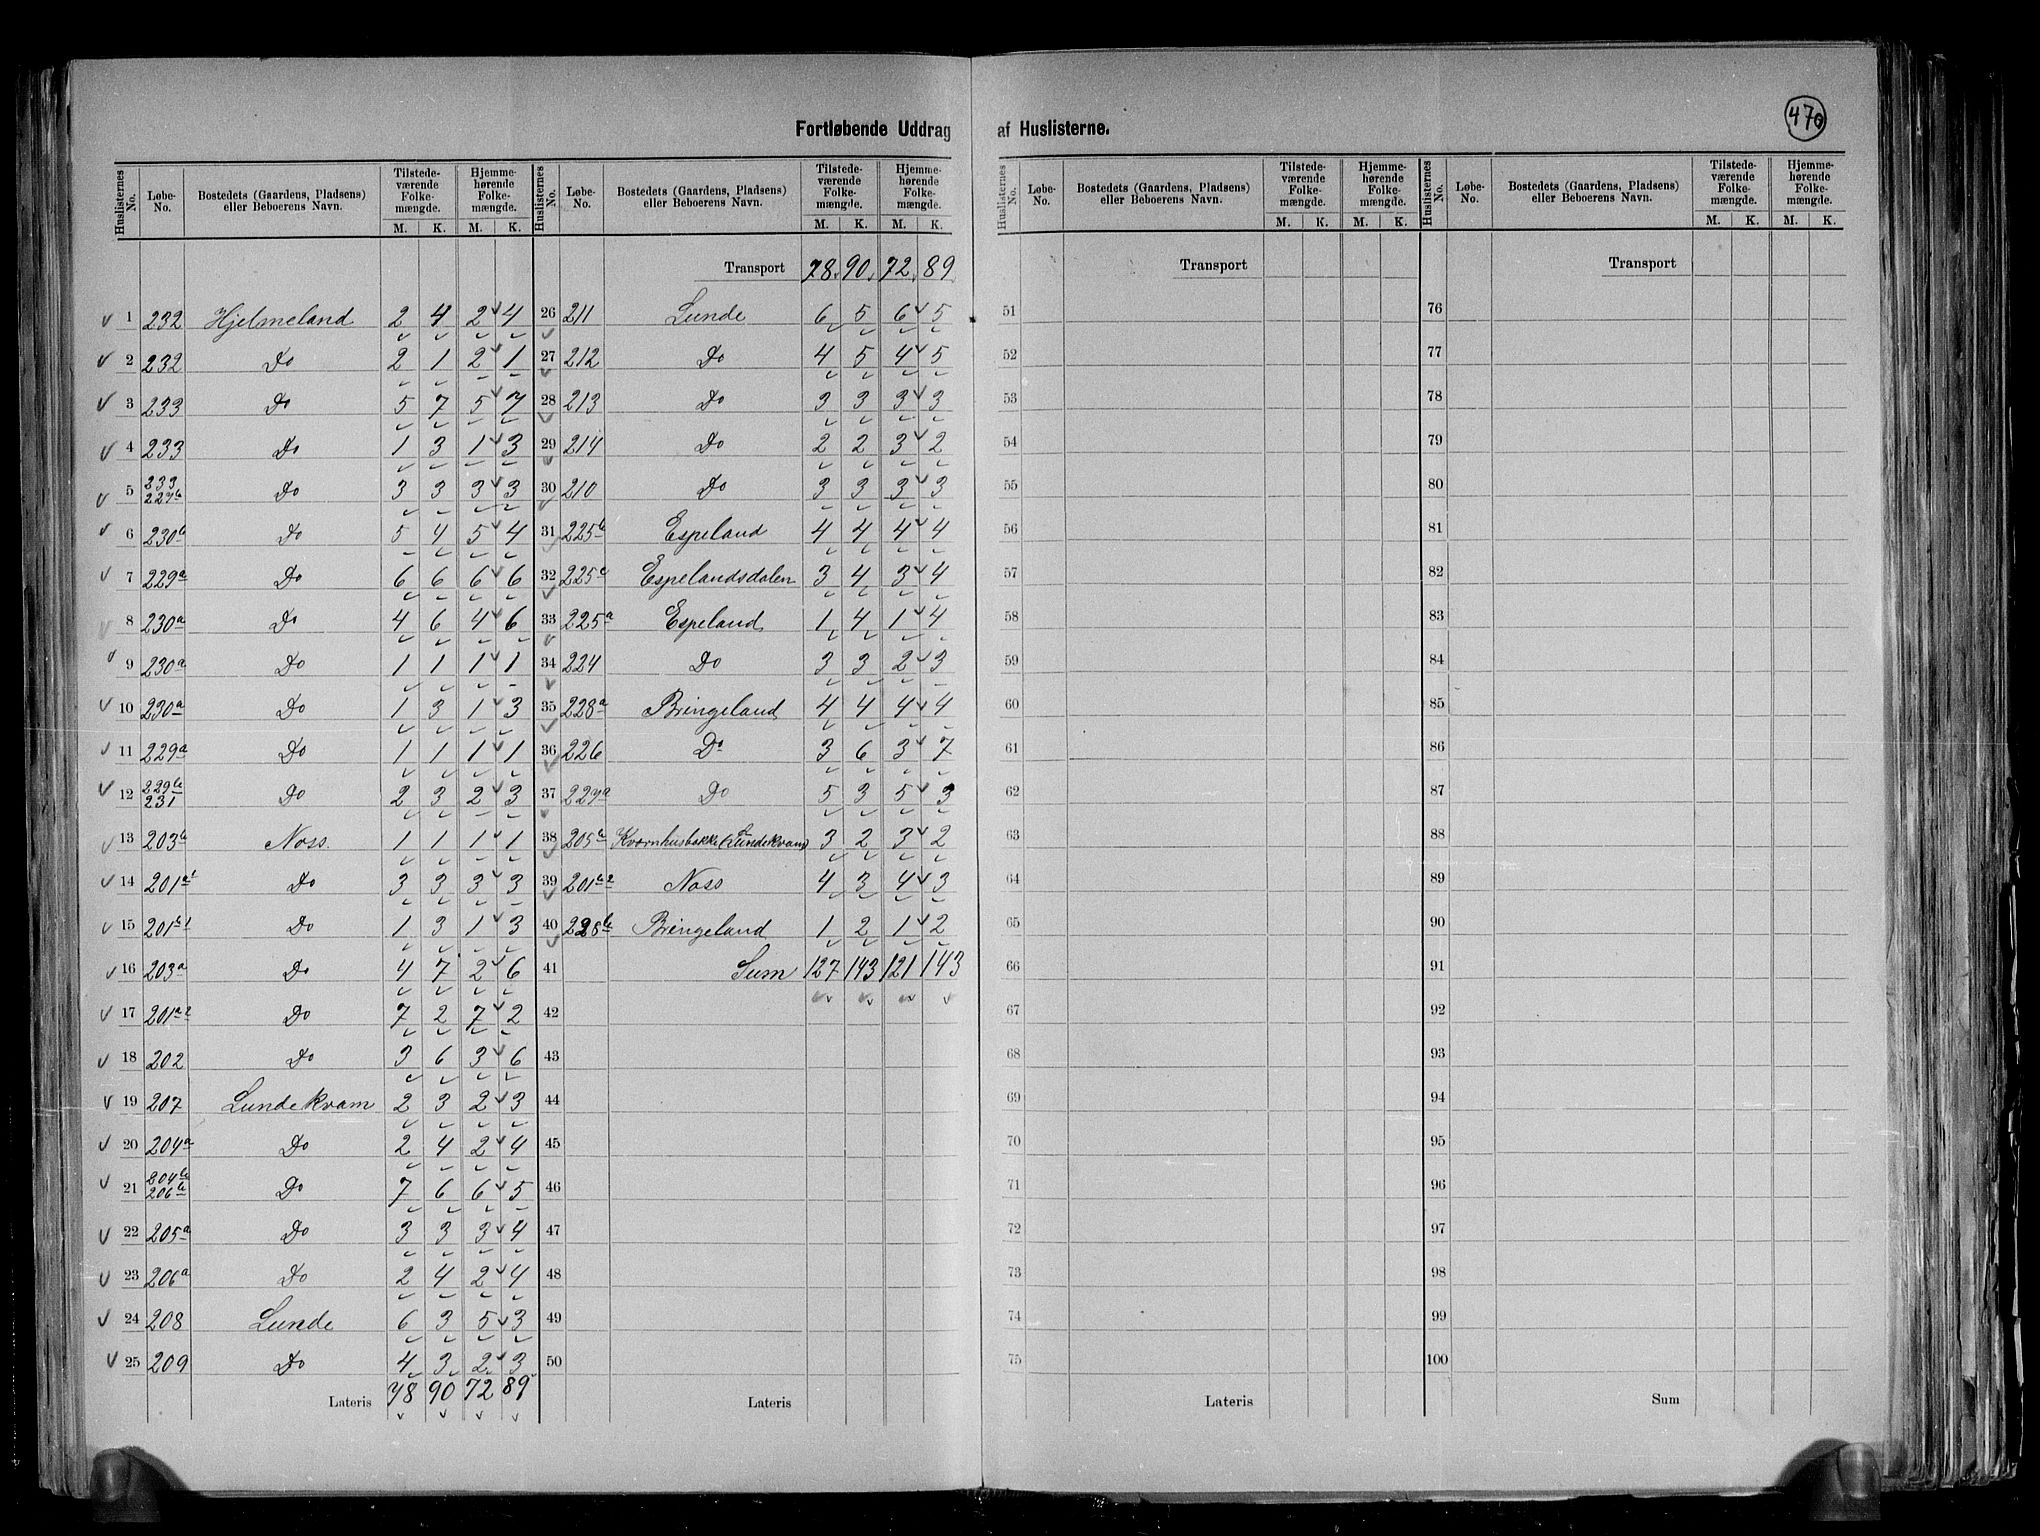 470
Fortløbende Uddrag af Huslisterne.
Huslisternes No. | Løbe-No. | Bostedets (Gaardens, Pladsens) eller Beboerens Navn. | Tilstedeværende Folkemængde. M. K. | Hjemmehørende Folkemængde. M. K.
1 232 Hjelmeland 2 4 2 4
2 232 Do 2 1 2 1
3 233 Do 5 7 5 7
4 233 Do 1 3 1 3
5 233 227b Do 3 3 3 3
6 230b Do 5 4 5 4
7 229a Do 6 6 6 6
8 230a Do 4 6 4 6
9 230a Do 1 1 1 1
10 230a Do 1 3 1 3
11 229a Do 1 1 1 1
12 229b 231 Do 2 3 2 3
13 203b Noss. 1 1 1 1
14 201a1 Do 3 3 3 3
15 201b1 Do 1 3 1 3
16 203a Do 4 7 2 6
17 201a2 Do 7 2 7 2
18 202 Do 3 6 3 6
19 207 Lundekvam 2 3 2 3
20 204a Do 2 4 2 4
21 204b 206b Do 7 6 6 5
22 205a Do 3 3 3 4
23 206a Do 2 4 2 4
24 208 Lunde 6 3 5 3
25 209 Do 4 3 2 3
Lateris 78 90 72 89
Huslisternes No. | Løbe-No. | Bostedets (Gaardens, Pladsens) eller Beboerens Navn. | Tilstedeværende Folkemængde. M. K. | Hjemmehørende Folkemængde. M. K.
Transport 78 90 72 89
26 211 Lunde 6 5 6 5
27 212 Do 4 5 4 5
28 213 Do 3 3 3 3
29 214 Do 2 2 3 2
30 210 Do 3 3 3 3
31 225b Espeland 4 4 4 4
32 225c Espelandsdalen 3 4 3 4
33 225a Espeland 1 4 1 4
34 224 Do 3 3 2 3
35 228a Bringeland 4 4 4 4
36 226 Do 3 6 3 7
37 227a Do 5 3 5 3
38 205b Kvernhusbakke (Lundekvam) 3 2 3 2
39 201b2 Noss 4 3 4 3
40 228b Bringeland 1 2 1 2
41 Sum 127 143 121 143
42
43
44
45
46
47
48
49
50
Lateris
Huslisternes No. | Løbe-No. | Bostedets (Gaardens, Pladsens) eller Beboerens Navn. | Tilstedeværende Folkemængde. M. K. | Hjemmehørende Folkemængde. M. K.
Transport
51
52
53
54
55
56
57
58
59
60
61
62
63
64
65
66
67
68
69
70
71
72
73
74
75
Lateris
Huslisternes No. | Løbe-No. | Bostedets (Gaardens, Pladsens) eller Beboerens Navn. | Tilstedeværende Folkemængde. M. K. | Hjemmehørende Folkemængde. M. K.
Transport
76
77
78
79
80
81
82
83
84
85
86
87
88
89
90
91
92
93
94
95
96
97
98
99
100
Sum